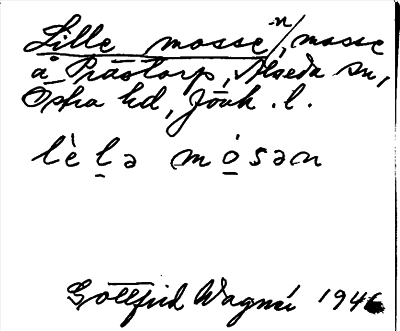 Lille mosse/-n, mosse
å Prästorp, Alseda sn,
Östra hd, Jönk. l.
lè l̲ə mó̲sən
Gottfrid Wagnsí 1946